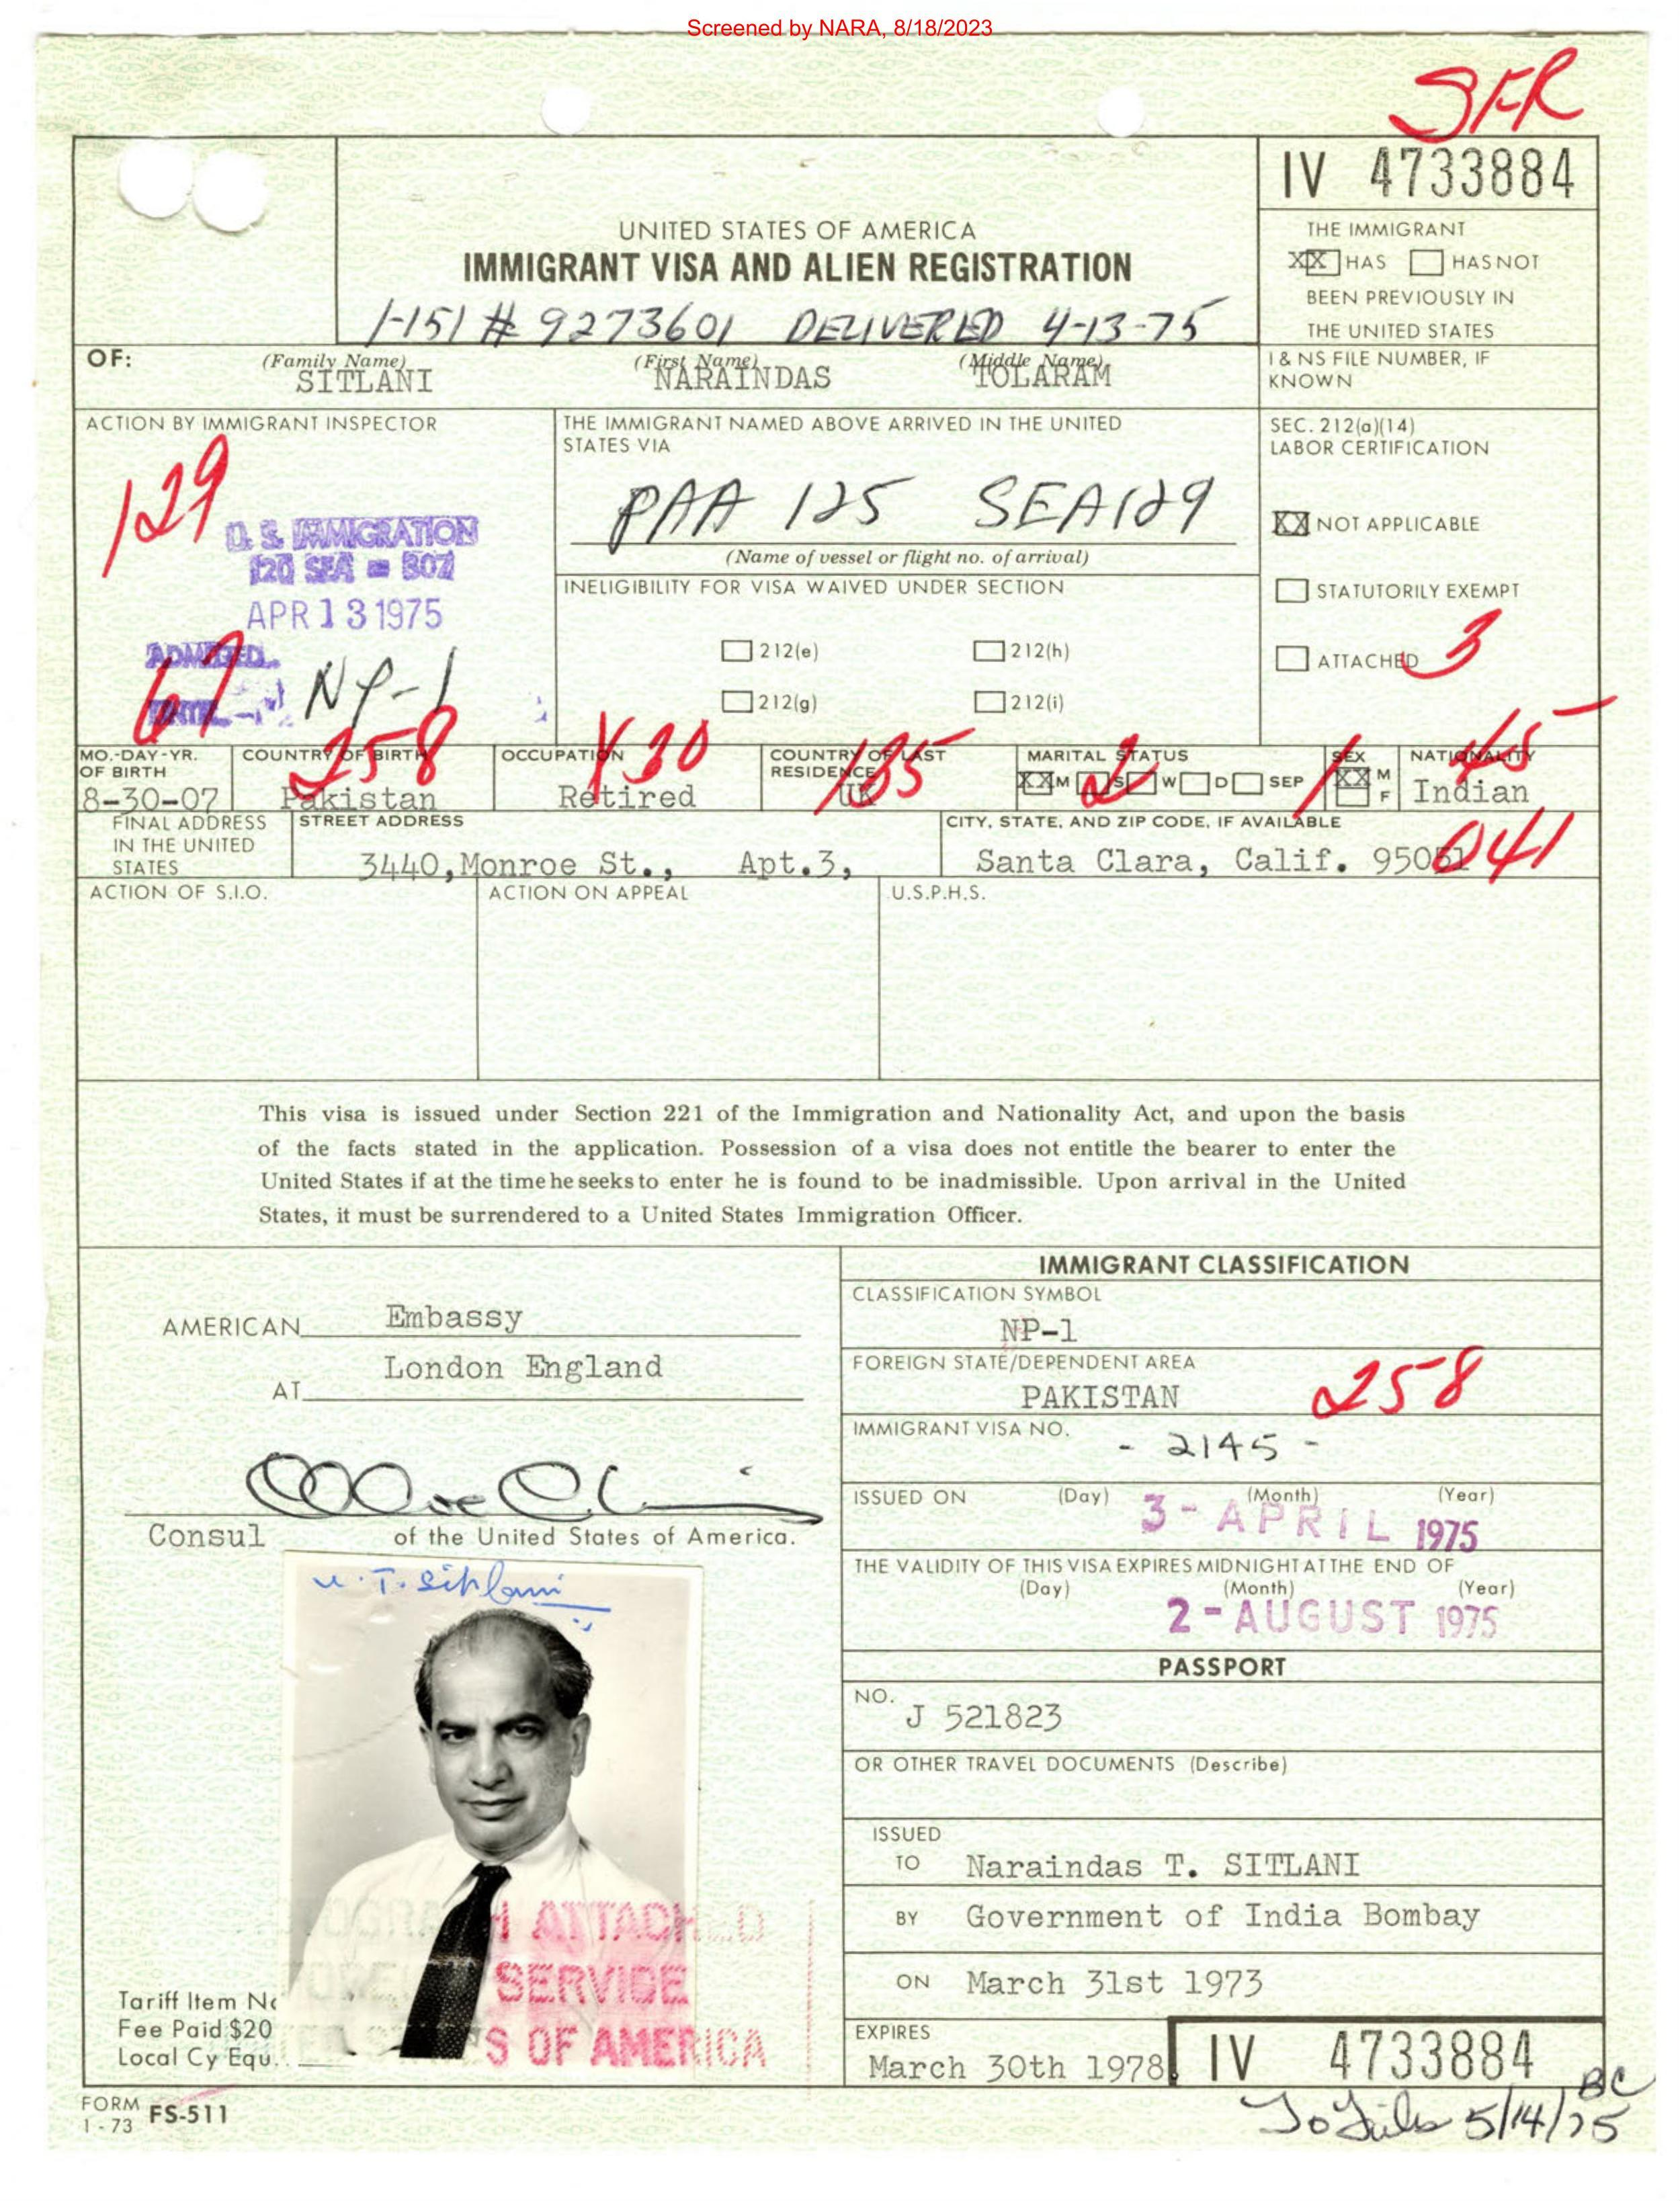 Screened by NARA, 8/18/2023
SFR
IV 4733884
UNITED STATES OF AMERICA
IMMIGRANT VISA AND ALIEN REGISTRATION
I-151 # 9273601 DELIVERED 4-13-75
THE IMMIGRANT
XX HAS HAS NOT
BEEN PREVIOUSLY IN
THE UNITED STATES
OF: (Family Name) (First Name) (Middle Name)
SITLANI NARAINDAS TOLARAM
I & NS FILE NUMBER, IF
KNOWN
ACTION BY IMMIGRANT INSPECTOR
129
U. S. IMMIGRATION
120 SEA 307
APR 13 1975
ADMITTED
67
NP-1
THE IMMIGRANT NAMED ABOVE ARRIVED IN THE UNITED
STATES VIA
PAA 125 SEA 129
(Name of vessel or flight no. of arrival)
INELIGIBILITY FOR VISA WAIVED UNDER SECTION
212(e) 212(h)
212(g) 212(i)
SEC. 212(a)(14)
LABOR CERTIFICATION
XX NOT APPLICABLE
STATUTORILY EXEMPT
ATTACHED 3
MO.-DAY-YR.
OF BIRTH
8-30-07
COUNTRY OF BIRTH
258
Pakistan
OCCUPATION
Y30
Retired
COUNTRY OF LAST
RESIDENCE
UK
MARITAL STATUS
XX M S W D SEP
2
SEX
1
XX M
F
NATIONALITY
Indian
FINAL ADDRESS
IN THE UNITED
STATES
STREET ADDRESS
3440, Monroe St., Apt.3,
CITY, STATE, AND ZIP CODE, IF AVAILABLE
Santa Clara, Calif. 95051
041
ACTION OF S.I.O.
ACTION ON APPEAL
U.S.P.H.S.
This visa is issued under Section 221 of the Immigration and Nationality Act, and upon the basis
of the facts stated in the application. Possession of a visa does not entitle the bearer to enter the
United States if at the time he seeks to enter he is found to be inadmissible. Upon arrival in the United
States, it must be surrendered to a United States Immigration Officer.
AMERICAN Embassy
AT London England
Consul of the United States of America.
N. T. Sitlani
PHOTOGRAPH ATTACHED
SERVICE
S OF AMERICA
Tariff Item No
Fee Paid $20
Local Cy Equ.
IMMIGRANT CLASSIFICATION
CLASSIFICATION SYMBOL
NP-1
FOREIGN STATE/DEPENDENT AREA
PAKISTAN 258
IMMIGRANT VISA NO.
- 2145 -
ISSUED ON (Day) (Month) (Year)
3 - APRIL 1975
THE VALIDITY OF THIS VISA EXPIRES MIDNIGHT AT THE END OF
(Day) (Month) (Year)
2 - AUGUST 1975
PASSPORT
NO.
J 521823
OR OTHER TRAVEL DOCUMENTS (Describe)
ISSUED
TO Naraindas T. SITLANI
BY Government of India Bombay
ON March 31st 1973
EXPIRES
March 30th 1978
IV 4733884
FORM
1 - 73 FS-511
BC
To Files 5/14/75